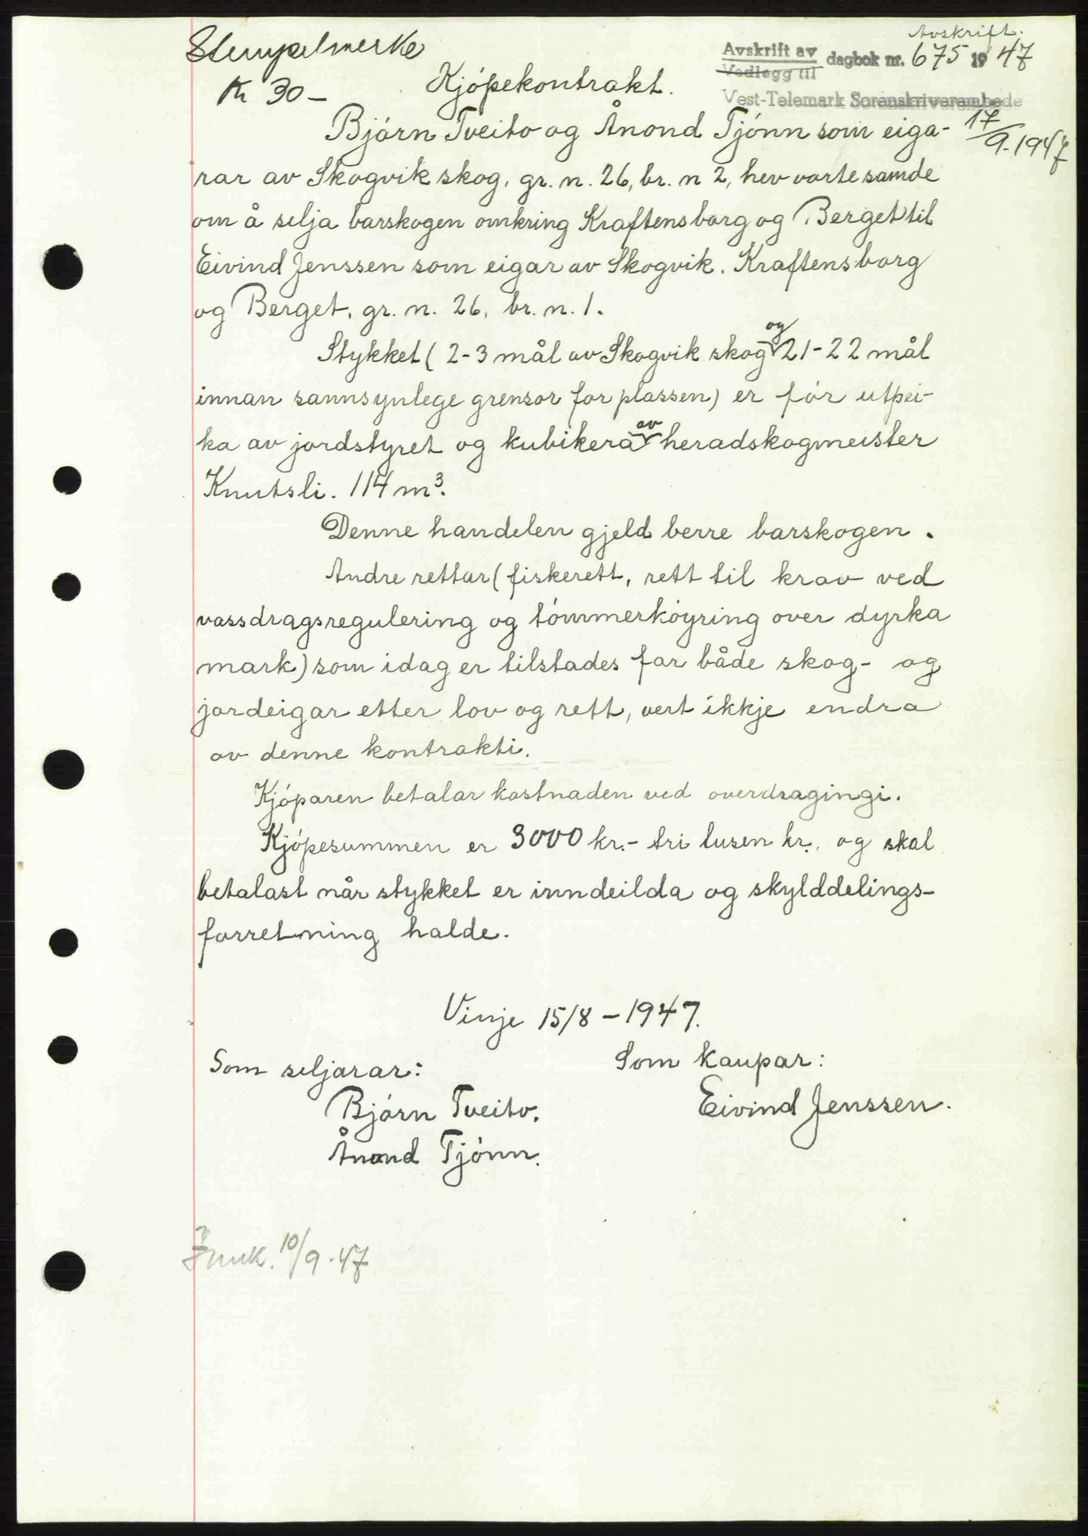 Avskrift.
Stempelmerke
Kr 30-
Avskrift av dagbok nr. 675 1947
Vedlegg til
Vest-Telemark Sorenskriverembede
17/9-1947
Kjópekontrakt.
Bjórn Tveito og Ånond Tjónn som eiga-
rar av Skogvik skog, gr. n. 26, br. n 2, hev vorte samde
om å selja barskogen omkring Kraftensborg og Berget til
Eivind Jenssen som eigar av Skogvik. Kraftensborg
og Berget, gr. n. 26, br. n. 1.
Stykket ( 2-3 mål av Skogvik skog og 21-22 mål
innan sannsynlege grensor for plassen) er fór utpei-
ka av jordstyret og kubikera av heradskogmeister
Knutsli. 114 m³.
Denne handelen gjeld berre barskogen.
Andre rettar (fiskerett, rett til krav ved
vassdragsregulering og tómmerkóyring over dyrka
mark) som idag er tilstades for både skog- og
jordeigar etter lov og rett, vert ikkje endra
av denne kontrakti.
Kjóparen betalar kostnaden ved overdragingi.
Kjópesummen er 3000 kr.- tri tusen kr. og skal
betalast når stykket er inndeilda og skylddelings-
forretning halde.
Vinje 15/8 - 1947.
Som seljarar:
Som kaupar:
Bjórn Tveito.
Eivind Jenssen.
Ånond Tjónn.
10/9-47